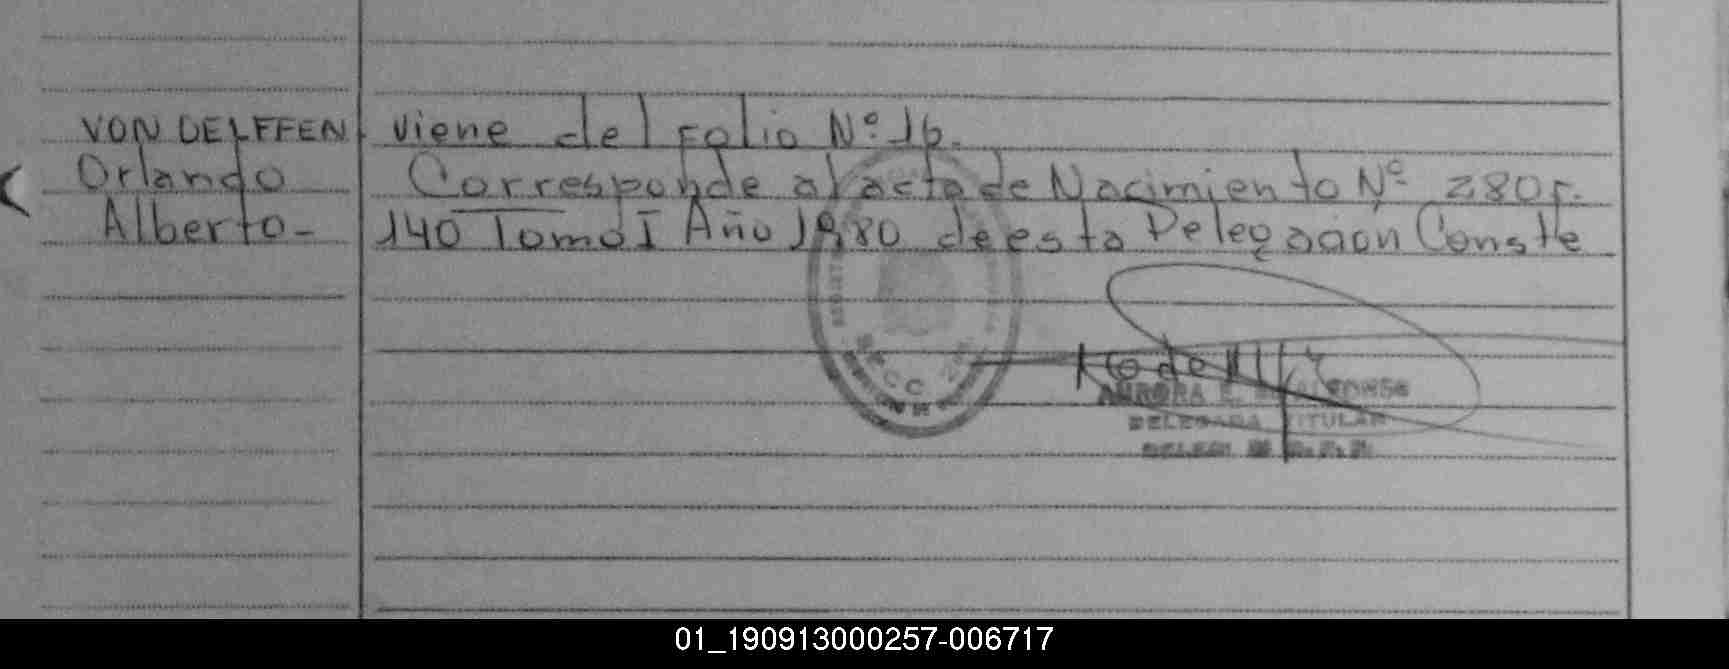 VON DELFFEN
Orlando
Alberto-
viene del Folio Nº 16.
Corresponde al acta de Nacimiento Nº 280 F.
140 Tomo I Año 1980 de esta Delegación Conste
AURORA E.
DELEGADA TITULAR
01_190913000257-006717